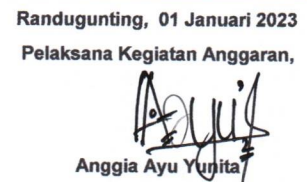 Randugunting, 01 Januari 2023
Pelaksana Kegiatan Anggaran,
Anggia Ayu Yunita